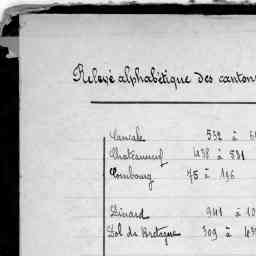 Relevé alphabétique des cantons
Cancale 552 à
Chateauneuf 478 à 551
Combourg 75 à 196
Dinard 941 à 10
Dol de Bretagne 309 à 43